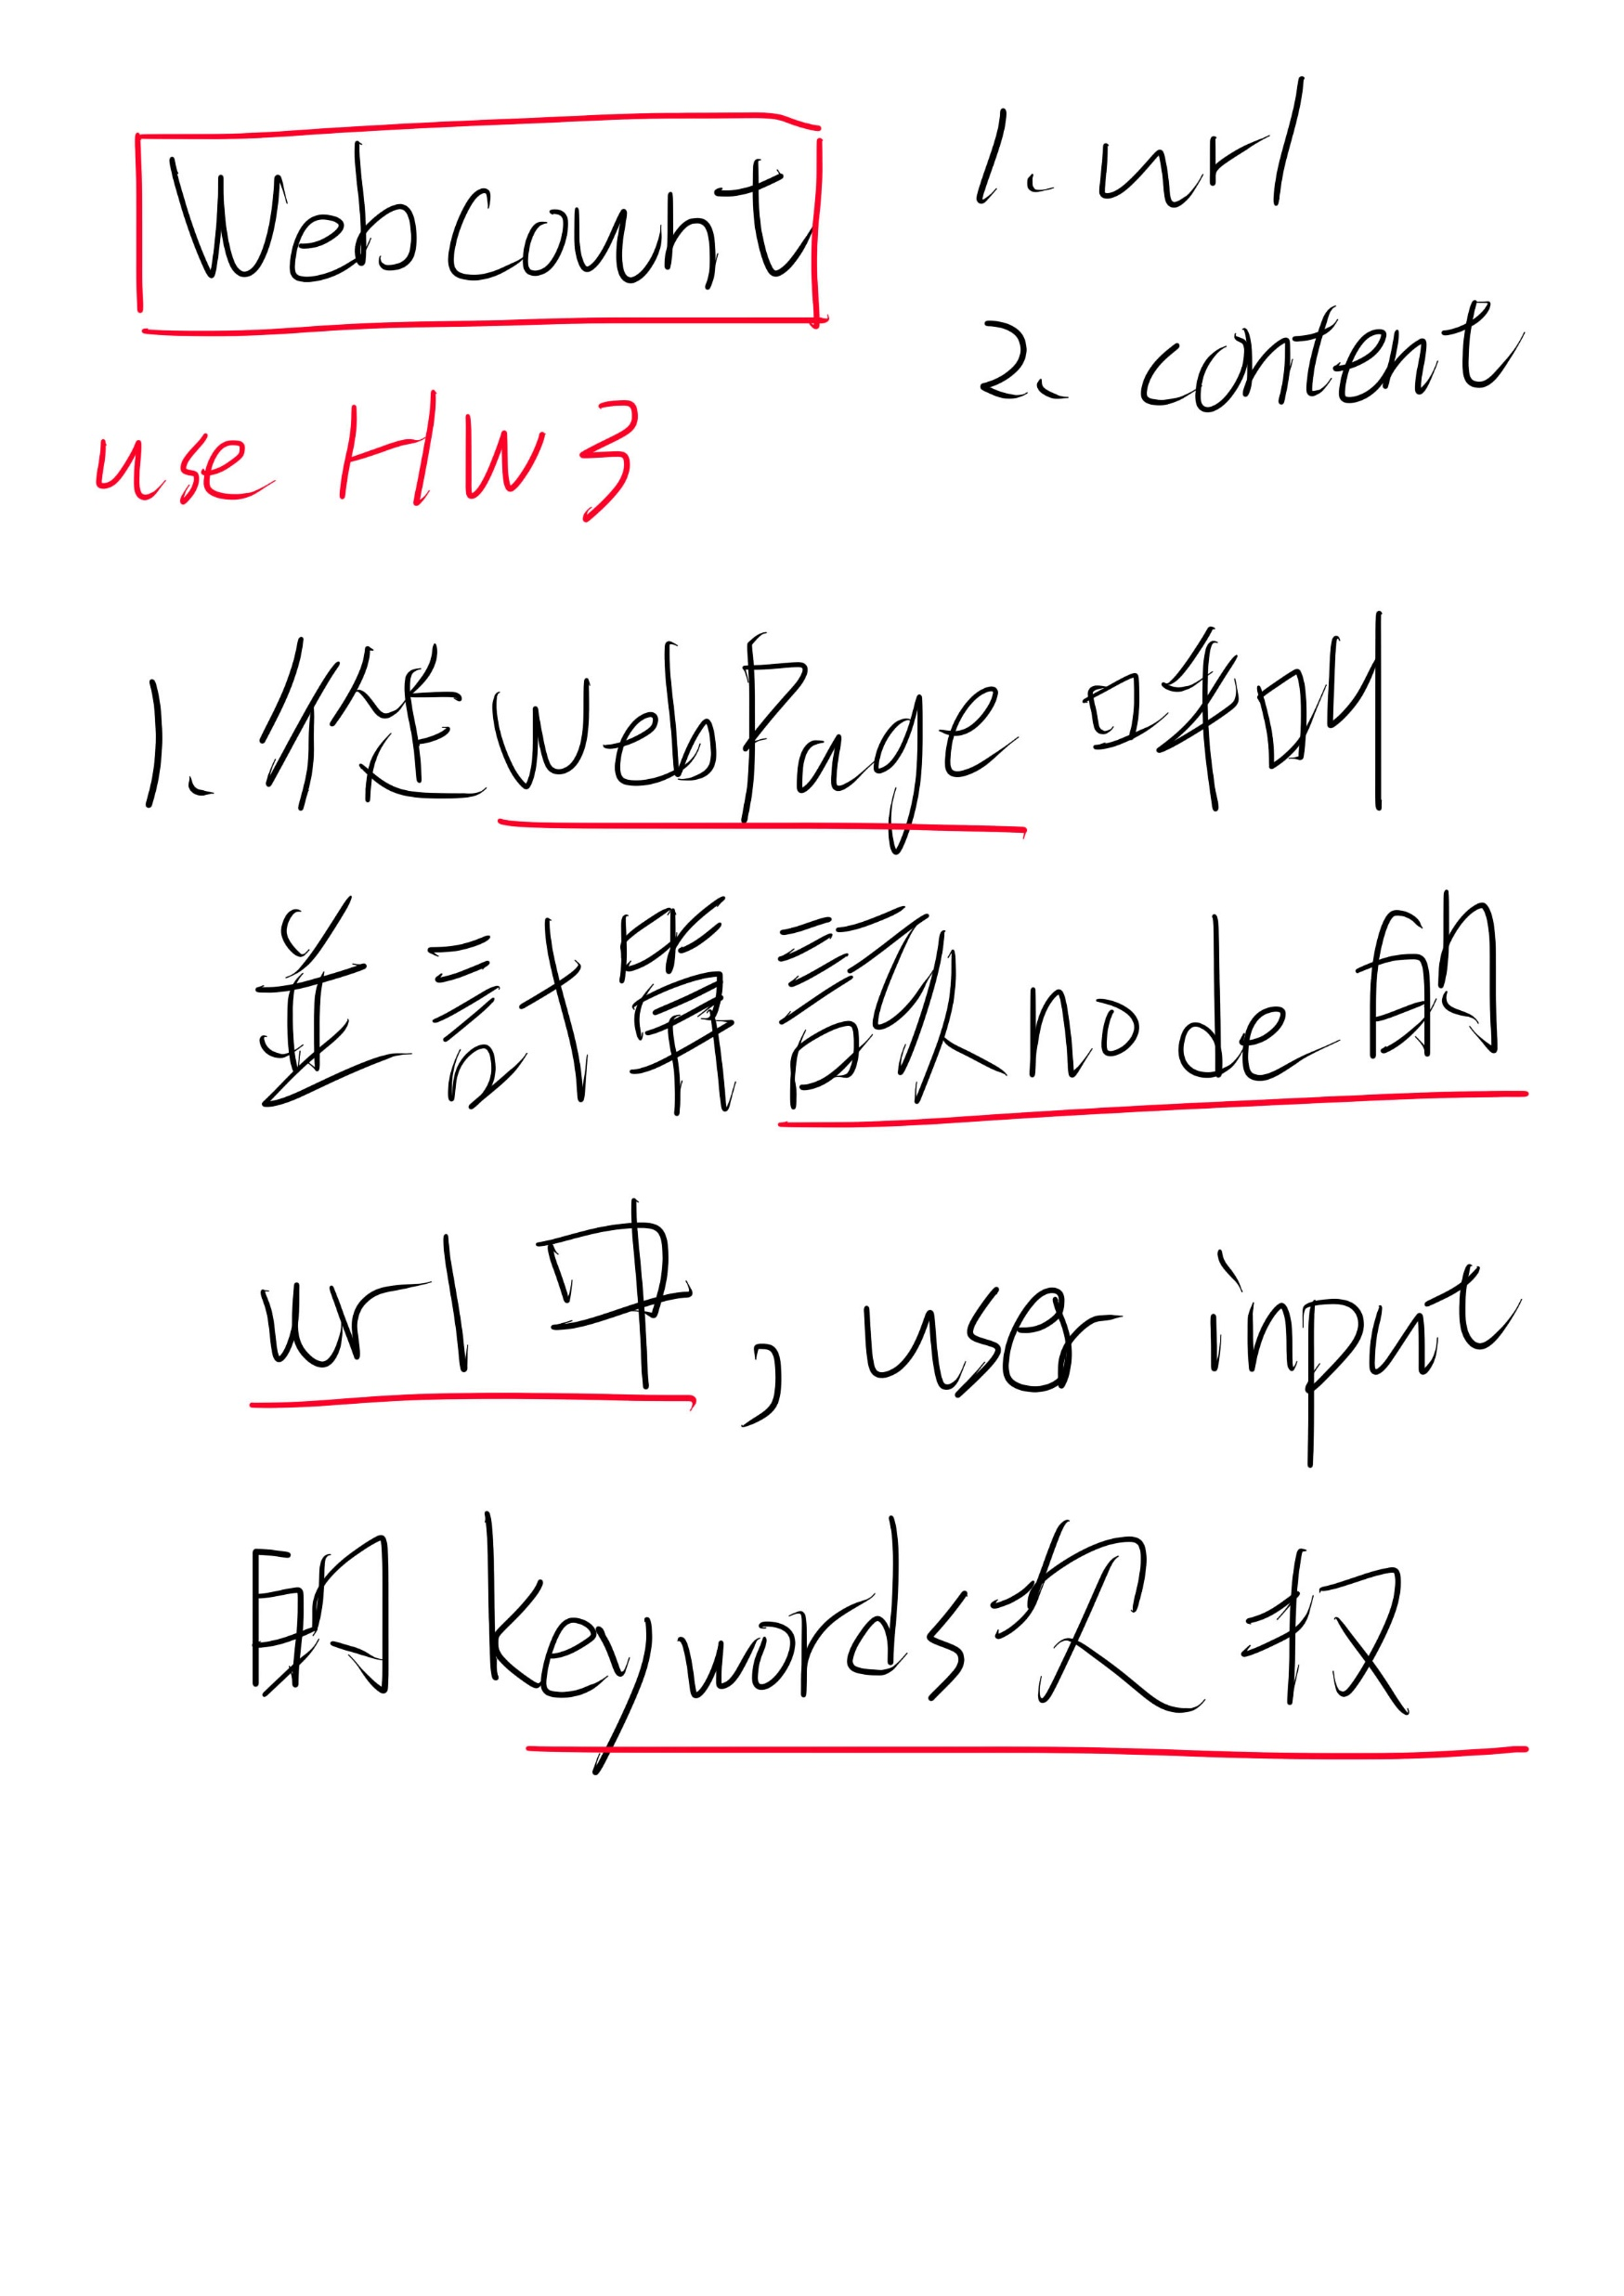 Webcount
1. url
2. content
use HW3
1. 從webPage呼叫
並計算該node的
url中, user inpnt
的keywords次权